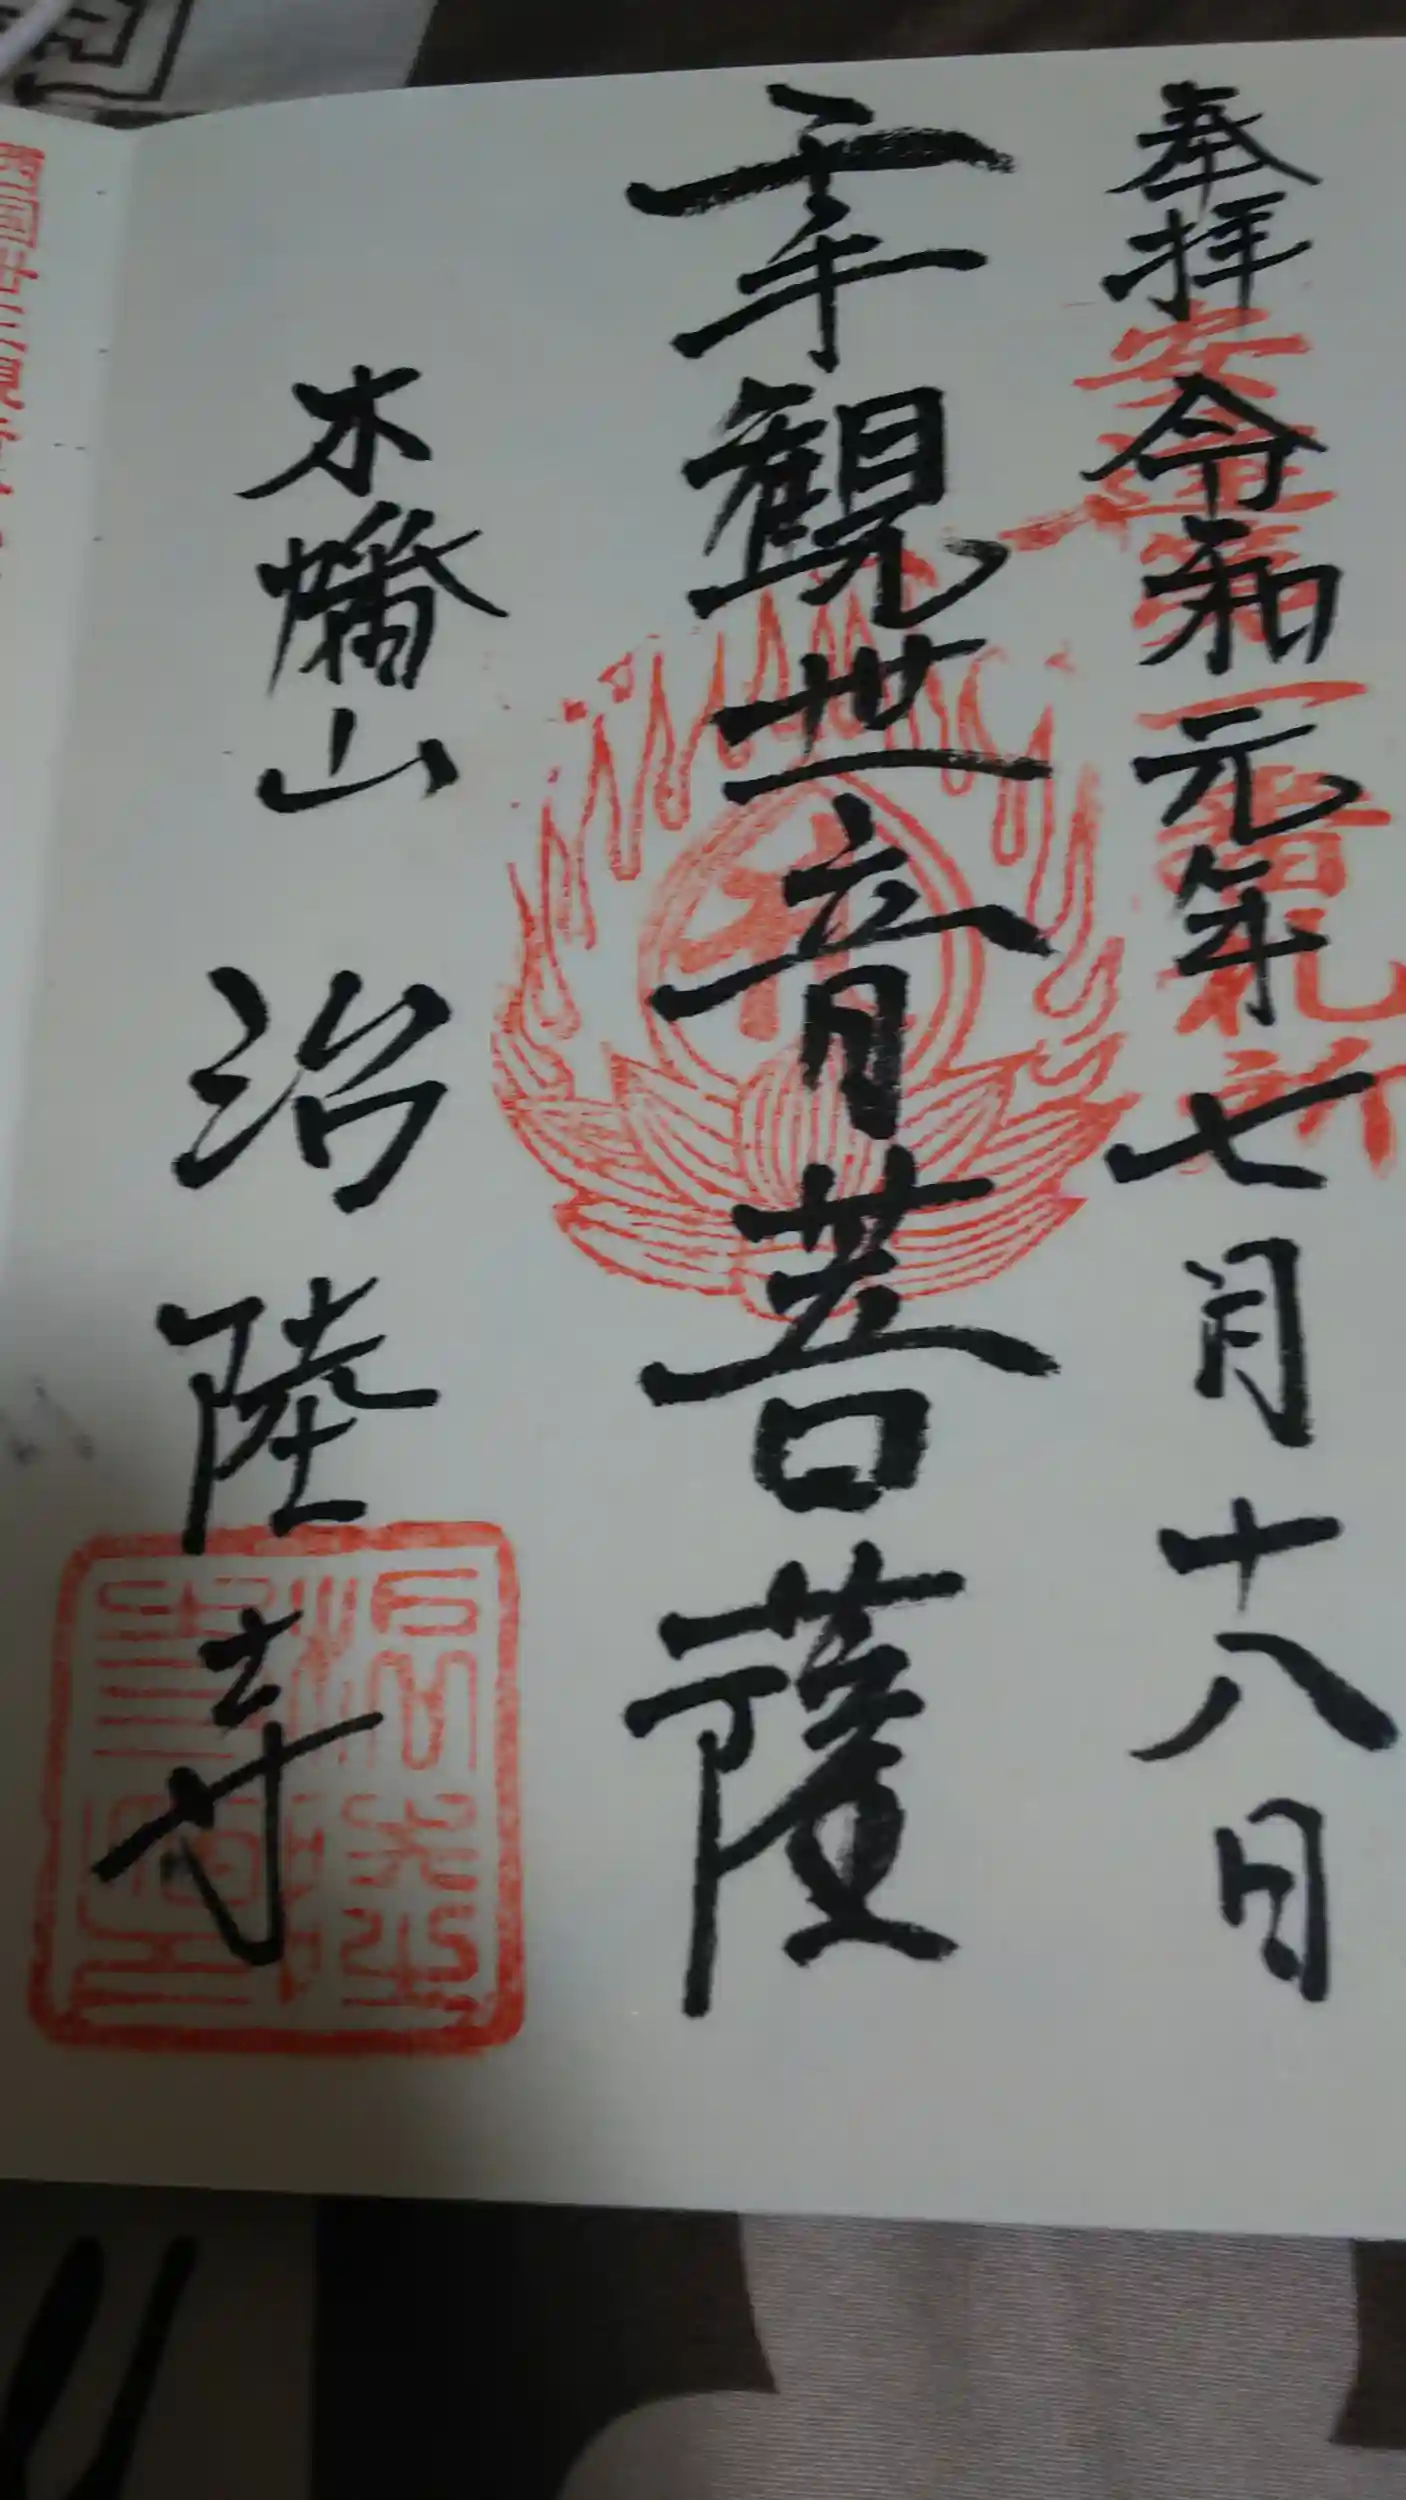 奉拝 令和元年七月十八日
安達第一番札所
千手観世音菩薩
木幡山 治陸寺